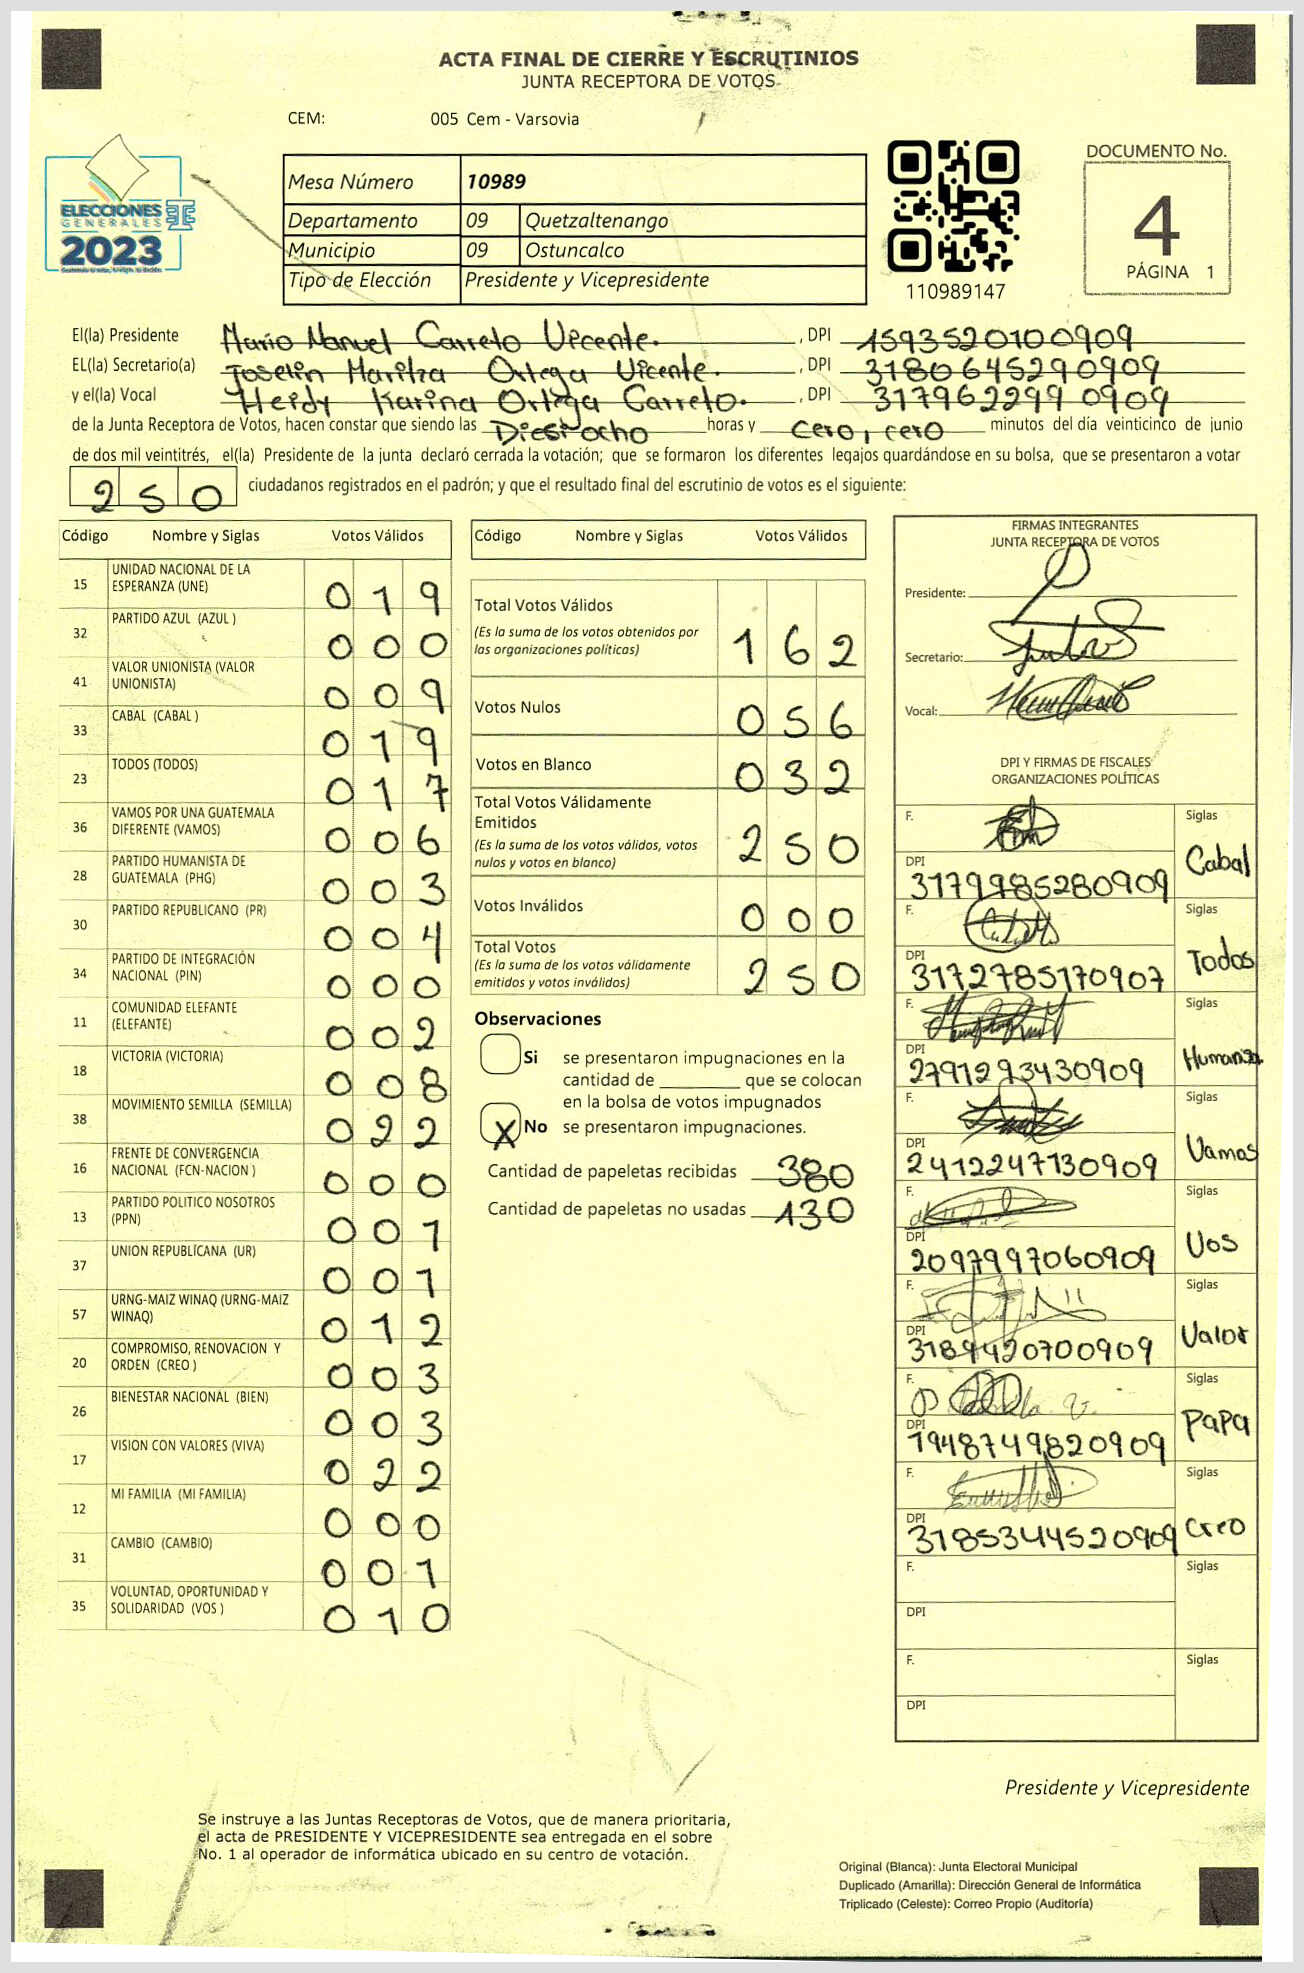 ACTA FINAL DE CIERRE Y ESCRUTINIOS
JUNTA RECEPTORA DE VOTOS
CEM: 005 Cem - Varsovia
ELECCIONES
GENERALES
2023
Mesa Número 10989
Departamento 09 Quetzaltenango
Municipio 09 Ostuncalco
Tipo de Elección Presidente y Vicepresidente
110989147
DOCUMENTO No.
4
PÁGINA 1
El(la) Presidente Mario Manuel Carreto Vicente. , DPI 1593520100909
EL(la) Secretario(a) Joselin Maritza Ortega Vicente. , DPI 3180645290909
y el(la) Vocal Heidy Karina Ortega Carreto. , DPI 3179622990909
de la Junta Receptora de Votos, hacen constar que siendo las Dieciocho horas y cero, cero minutos del día veinticinco de junio
de dos mil veintitrés, el(la) Presidente de la junta declaró cerrada la votación; que se formaron los diferentes legajos guardándose en su bolsa, que se presentaron a votar
250 ciudadanos registrados en el padrón; y que el resultado final del escrutinio de votos es el siguiente:
Código Nombre y Siglas Votos Válidos
15 UNIDAD NACIONAL DE LA ESPERANZA (UNE) 019
32 PARTIDO AZUL (AZUL ) 000
41 VALOR UNIONISTA (VALOR UNIONISTA) 009
33 CABAL (CABAL ) 019
23 TODOS (TODOS) 017
36 VAMOS POR UNA GUATEMALA DIFERENTE (VAMOS) 006
28 PARTIDO HUMANISTA DE GUATEMALA (PHG) 003
30 PARTIDO REPUBLICANO (PR) 004
34 PARTIDO DE INTEGRACIÓN NACIONAL (PIN) 000
11 COMUNIDAD ELEFANTE (ELEFANTE) 002
18 VICTORIA (VICTORIA) 008
38 MOVIMIENTO SEMILLA (SEMILLA) 022
16 FRENTE DE CONVERGENCIA NACIONAL (FCN-NACION ) 000
13 PARTIDO POLITICO NOSOTROS (PPN) 001
37 UNION REPUBLICANA (UR) 001
57 URNG-MAIZ WINAQ (URNG-MAIZ WINAQ) 012
20 COMPROMISO, RENOVACION Y ORDEN (CREO ) 003
26 BIENESTAR NACIONAL (BIEN) 003
17 VISION CON VALORES (VIVA) 022
12 MI FAMILIA (MI FAMILIA) 000
31 CAMBIO (CAMBIO) 001
35 VOLUNTAD, OPORTUNIDAD Y SOLIDARIDAD (VOS ) 010
Código Nombre y Siglas Votos Válidos
Total Votos Válidos 162
(Es la suma de los votos obtenidos por
las organizaciones políticas)
Votos Nulos 056
Votos en Blanco 032
Total Votos Válidamente
Emitidos 250
(Es la suma de los votos válidos, votos
nulos y votos en blanco)
Votos Inválidos 000
Total Votos 250
(Es la suma de los votos válidamente
emitidos y votos inválidos)
Observaciones
Si se presentaron impugnaciones en la
cantidad de ________ que se colocan
en la bolsa de votos impugnados
X No se presentaron impugnaciones.
Cantidad de papeletas recibidas 380
Cantidad de papeletas no usadas 130
FIRMAS INTEGRANTES
JUNTA RECEPTORA DE VOTOS
Presidente:
Secretario:
Vocal:
DPI Y FIRMAS DE FISCALES
ORGANIZACIONES POLÍTICAS
F. Siglas
DPI 3179985280909 Cabal
F. Siglas
DPI 3172785170907 Todos
F. Siglas
DPI 2791293430909 Humanista
F. Siglas
DPI 2412247130909 Vamos
F. Siglas
DPI 2097997060909 Vos
F. Siglas
DPI 3189420700909 Valor
F. Siglas
DPI 1948749820909 PaPa
F. Siglas
DPI 3185344520909 Creo
F. Siglas
DPI
F. Siglas
DPI
Presidente y Vicepresidente
Se instruye a las Juntas Receptoras de Votos, que de manera prioritaria,
el acta de PRESIDENTE Y VICEPRESIDENTE sea entregada en el sobre
No. 1 al operador de informática ubicado en su centro de votación.
Original (Blanca): Junta Electoral Municipal
Duplicado (Amarilla): Dirección General de Informática
Triplicado (Celeste): Correo Propio (Auditoría)